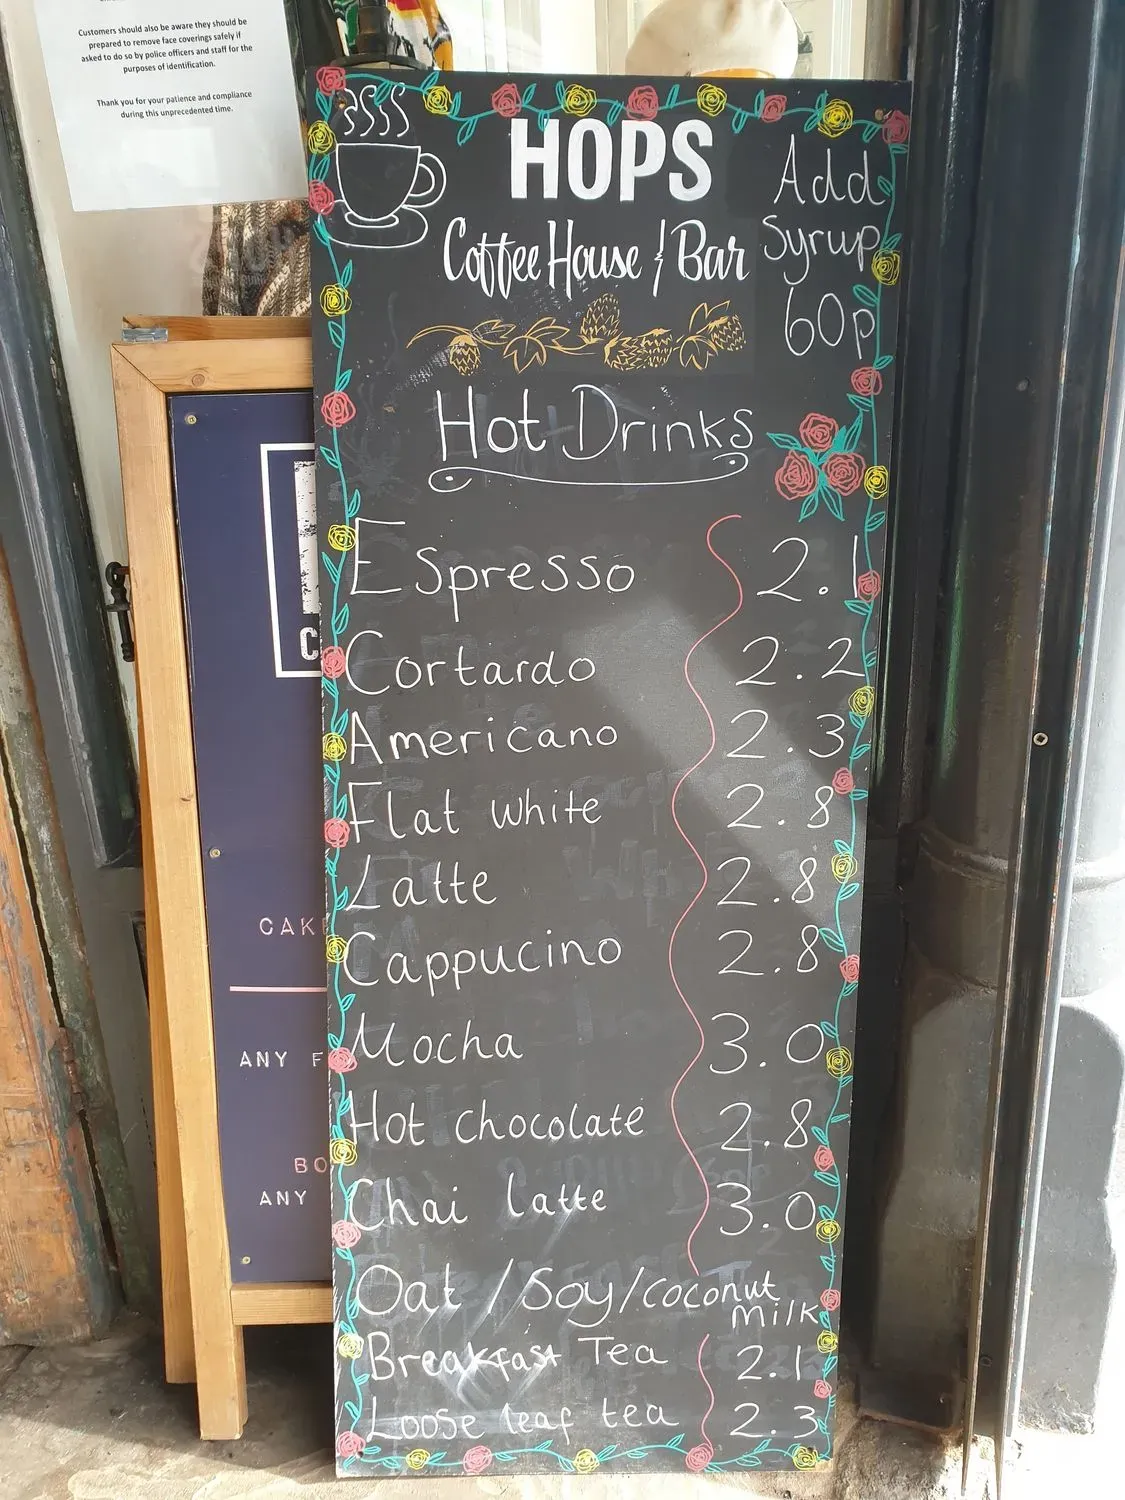 Customers should also be aware they should be
prepared to remove face coverings safely if
asked to do so by police officers and staff for the
purposes of identification.
Thank you for your patience and compliance
during this unprecedented time.
HOPS
Coffee House & Bar
Add
Syrup
60p
Hot Drinks
Espresso 2.1
Cortardo 2.2
Americano 2.3
Flat white 2.8
Latte 2.8
Cappucino 2.8
Mocha 3.0
Hot chocolate 2.8
Chai latte 3.0
Oat / Soy/coconut
milk
Breakfast Tea 2.1
Loose leaf tea 2.3
C
CAK
ANY F
BO
ANY